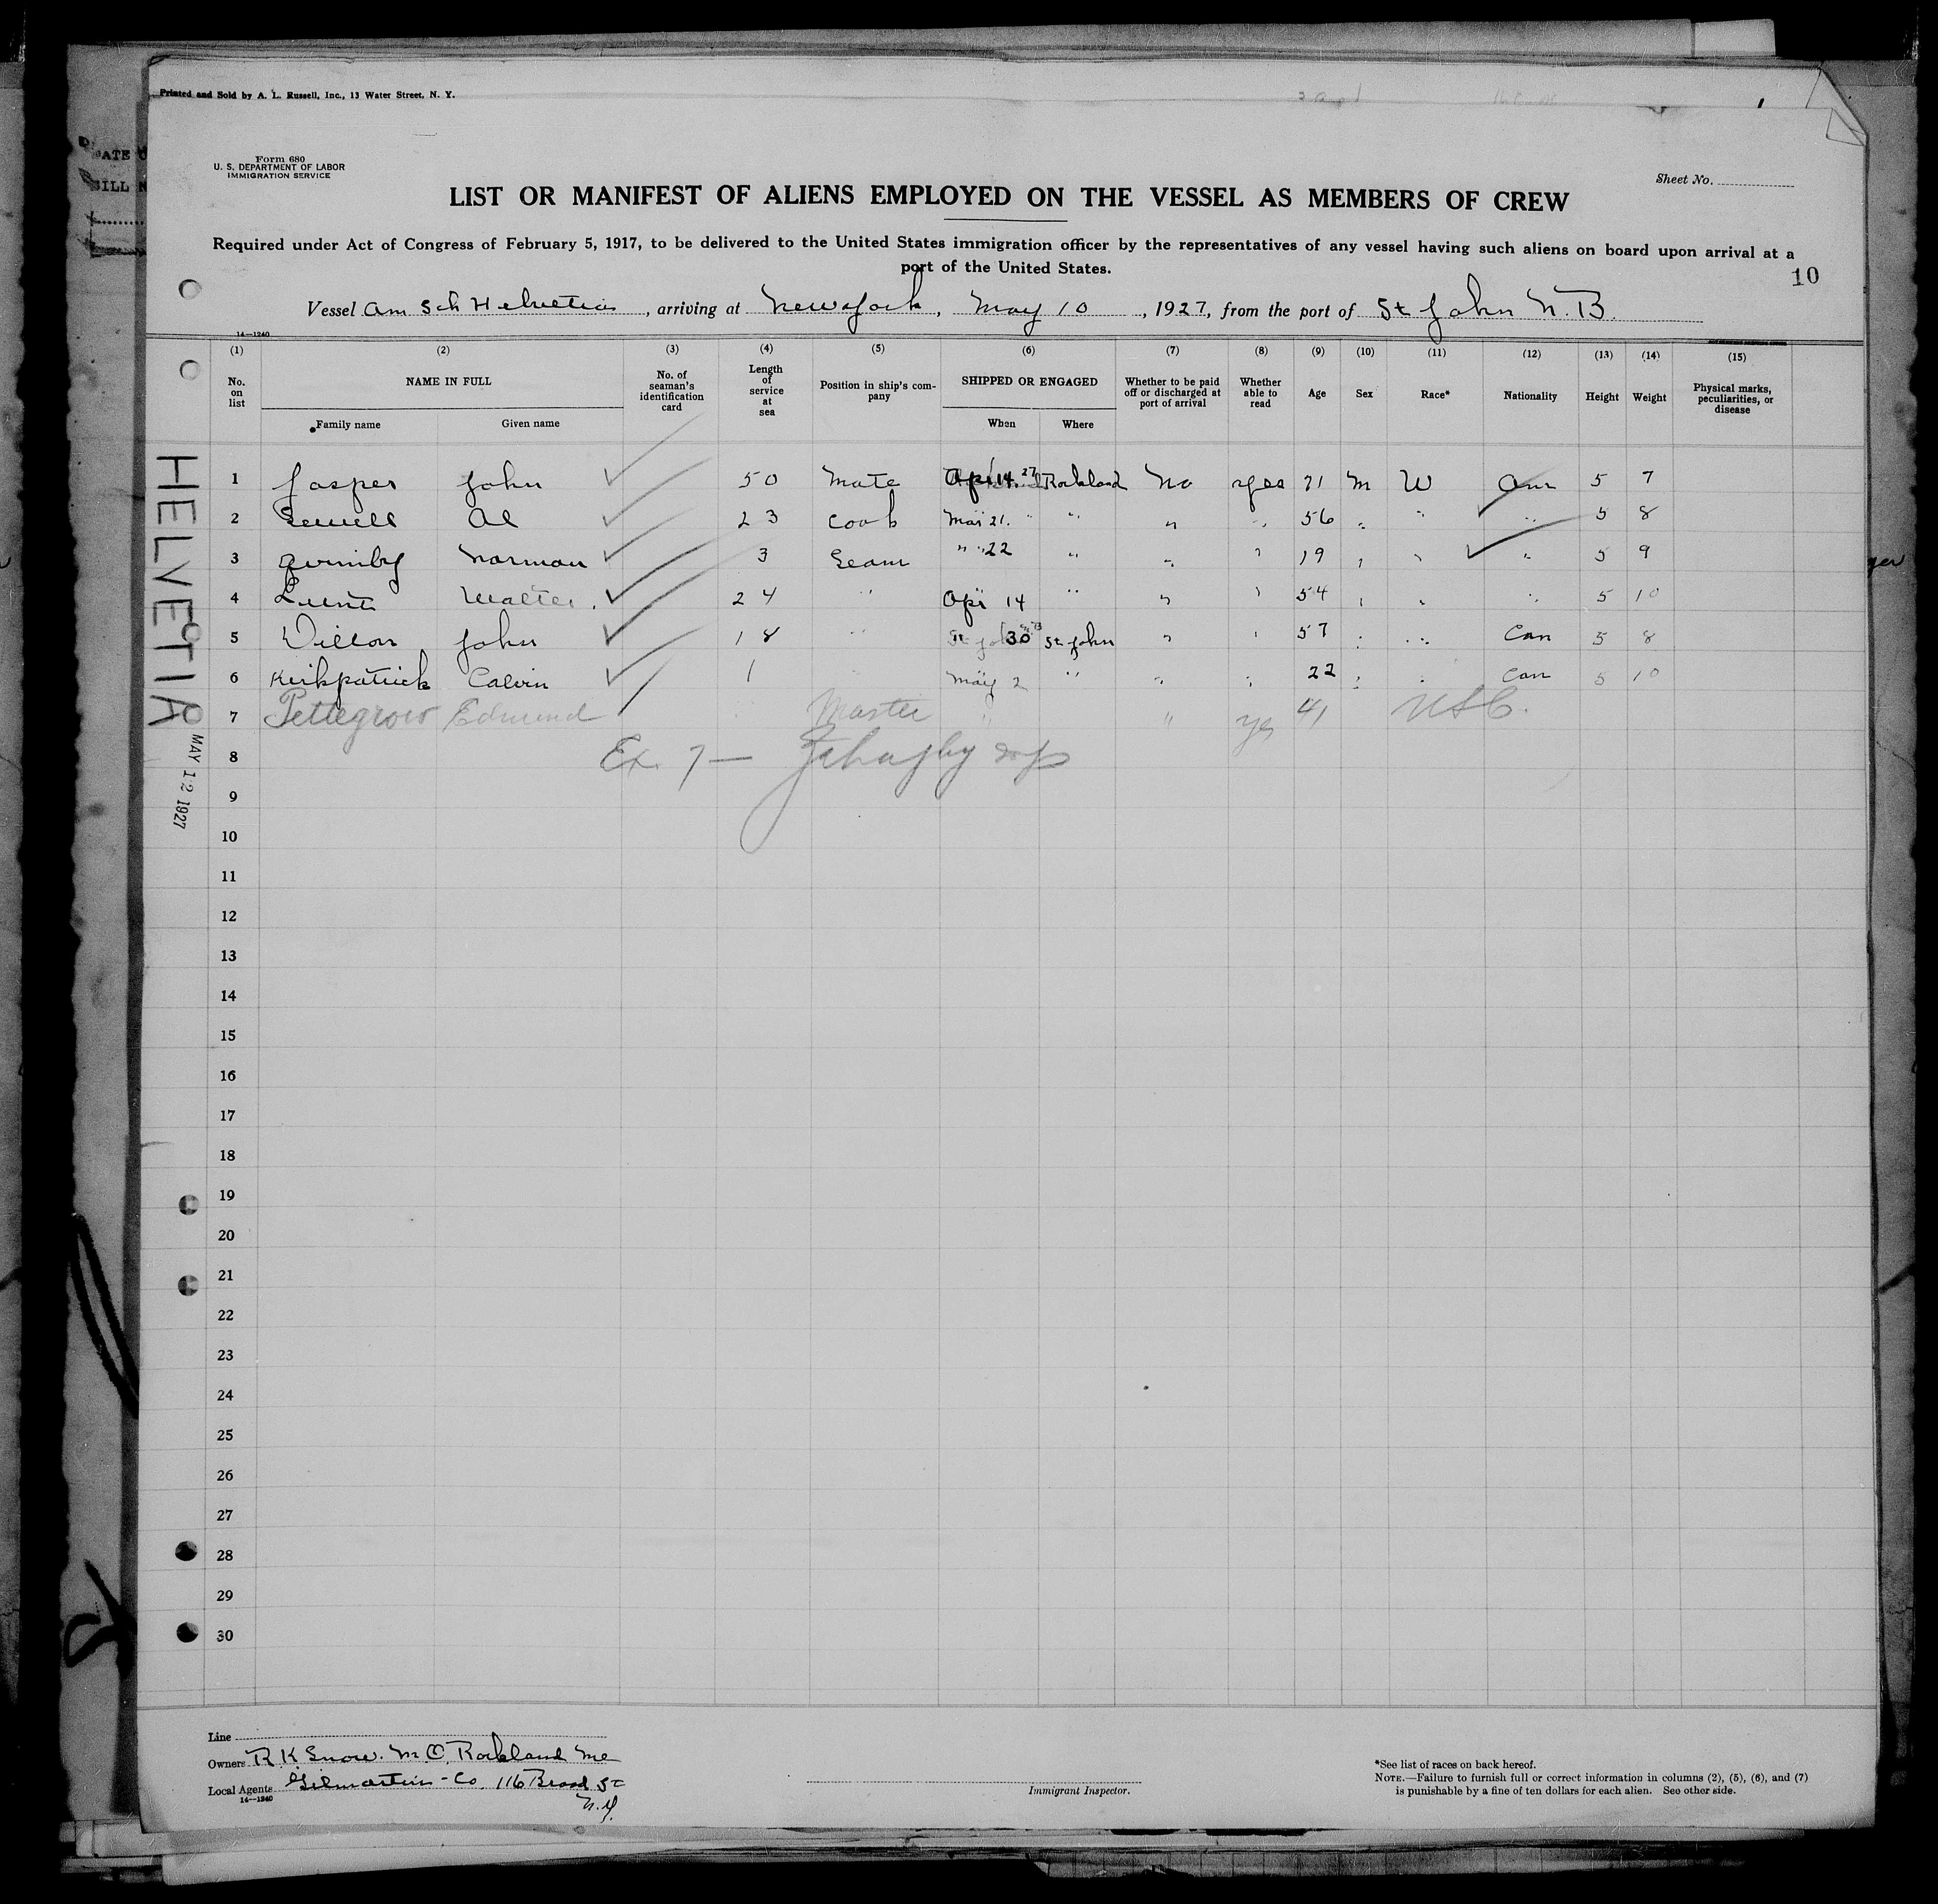 Printed and Sold by A. L. Russell, Inc., 13 Water Street, N. Y.
Form 680
U. S. DEPARTMENT OF LABOR
IMMIGRATION SERVICE
Sheet No.
LIST OR MANIFEST OF ALIENS EMPLOYED ON THE VESSEL AS MEMBERS OF CREW
Required under Act of Congress of February 5, 1917, to be delivered to the United States immigration officer by the representatives of any vessel having such aliens on board upon arrival at a
port of the United States.
10
Vessel Am Sch Helvetia, arriving at New York, May 10, 1927, from the port of St John N.B.
14—1240
(1) (2) (3) (4) (5) (6) (7) (8) (9) (10) (11) (12) (13) (14) (15)
No. on list NAME IN FULL Family name Given name No. of seaman's identification card Length of service at sea Position in ship's company SHIPPED OR ENGAGED When Where Whether to be paid off or discharged at port of arrival Whether able to read Age Sex Race* Nationality Height Weight Physical marks, peculiarities, or disease
1 Jasper John 50 Mate Apr 14. 27 Rockland No yes 71 M W Am 5 7
2 Sewell Al 23 Cook Mar 21. " " " " 56 " " " 5 8
3 Quimby Norman 3 Seam " " 22 " " " 19 " " " 5 9
4 Lunt Walter 24 " Apr 14 " " " 54 " " " 5 10
5 Dillon John 18 " " 30 St John " " 57 " " Can 5 8
6 Kirkpatrick Calvin 1 May 2 " " " 22 " " Can 5 10
7 Pettegrow Edmund Master " " yes 41 USC.
8 Ex. 7 —
9
10
11
12
13
14
15
16
17
18
19
20
21
22
23
24
25
26
27
28
29
30
HELVETIA
MAY 12 1927
Line
Owners R K Snow. M.O. Rockland Me
Local Agents Gilmartin - Co. 116 Broad St
N.Y.
14—1240
Immigrant Inspector.
*See list of races on back hereof.
NOTE.—Failure to furnish full or correct information in columns (2), (5), (6), and (7)
is punishable by a fine of ten dollars for each alien. See other side.